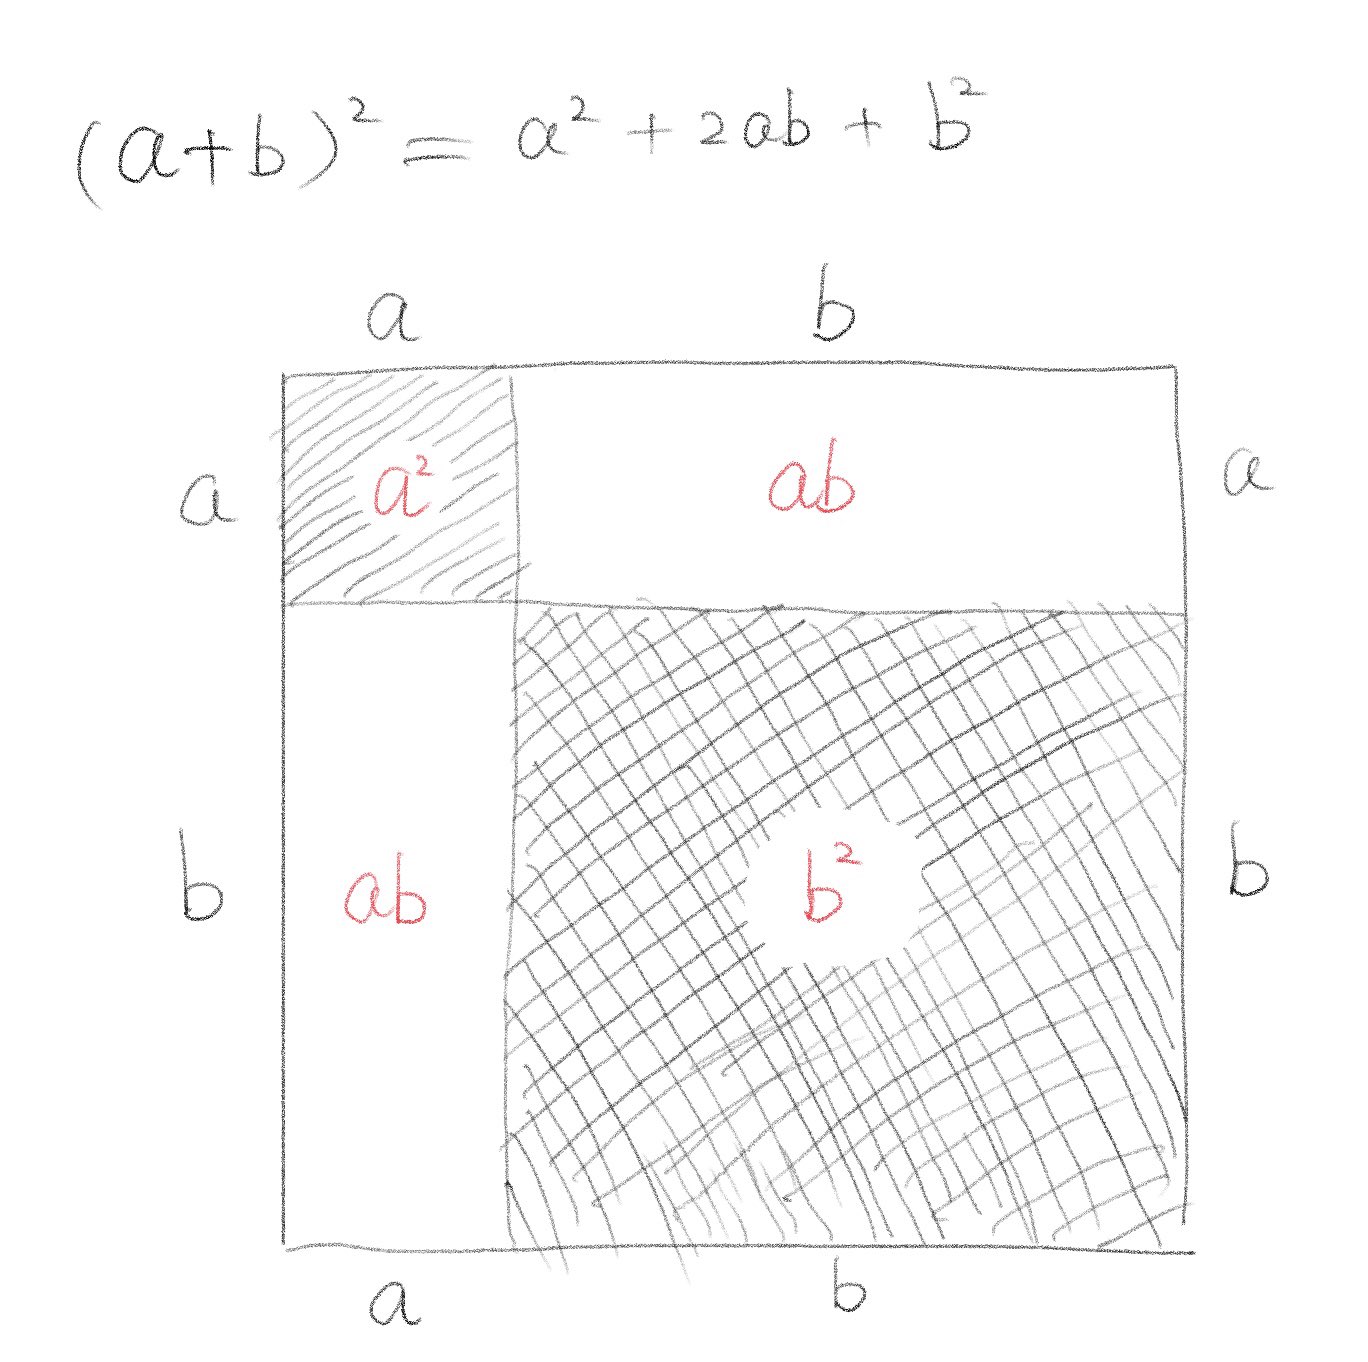 (a+b)² = a² + 2ab + b²
a b
a a² ab a
b ab b² b
a b